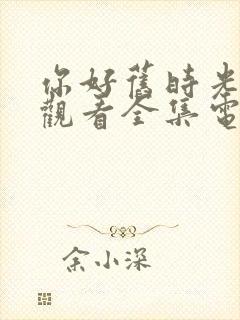 你好舊時光
觀看全集電
余小深